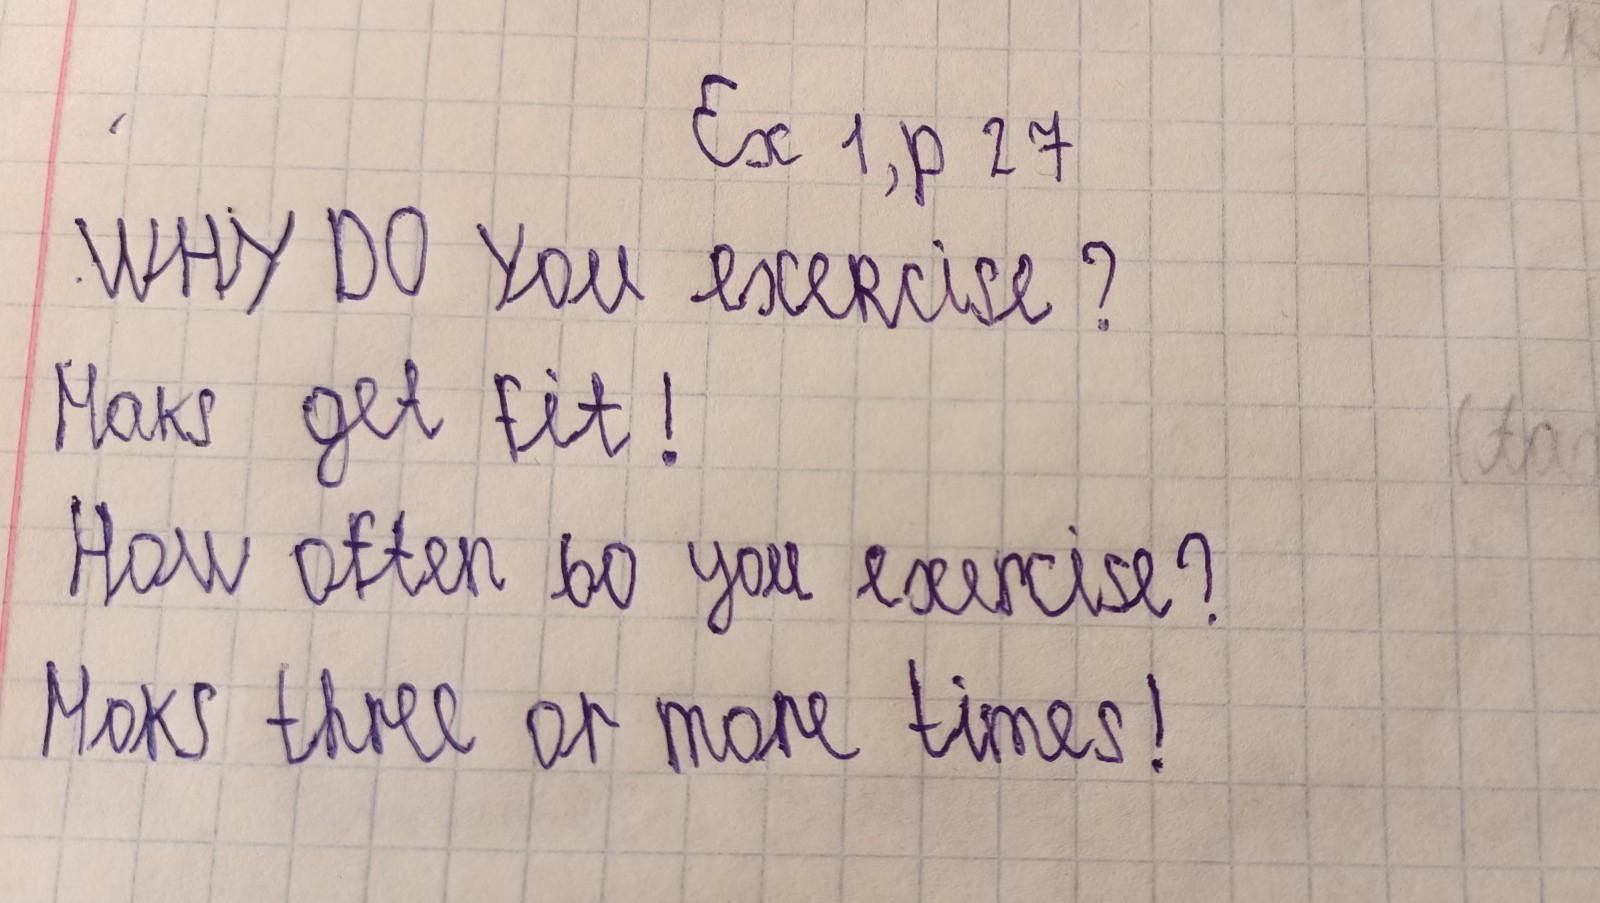 Ex 1, p 27
WHY DO You exercise?
Maks get fit!
How often bo you exercise?
Maks three or more times!